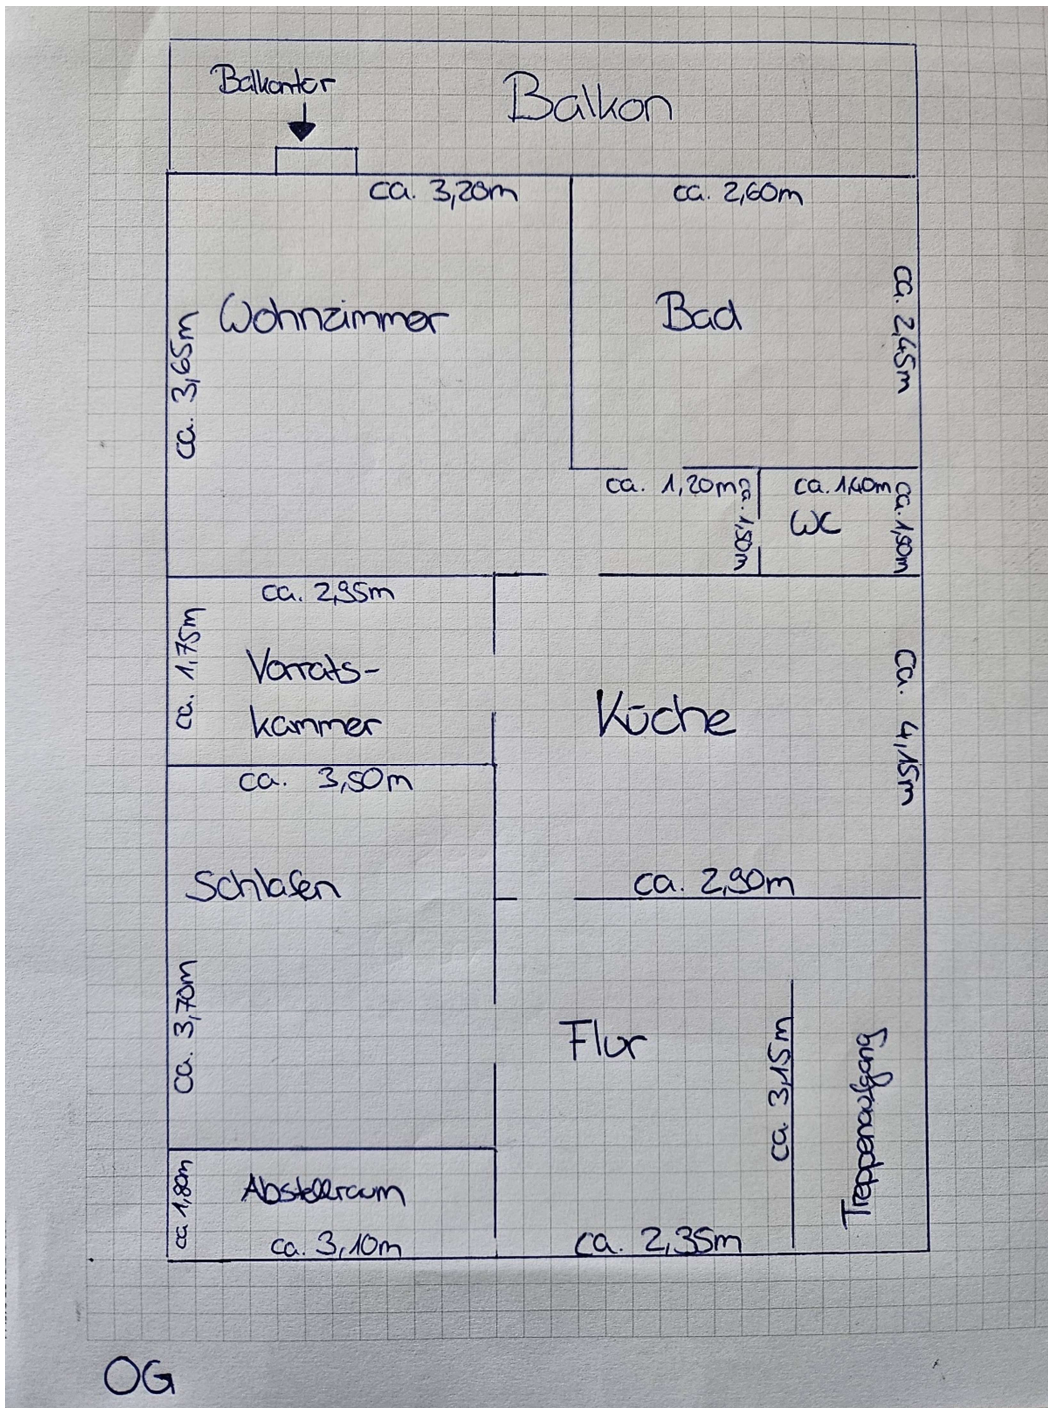 Balkontür
Balkon
ca. 3,20m
ca. 2,60m
Wohnzimmer
Bad
ca. 3,65m
ca. 2,45m
ca. 1,20m
ca. 1,50m
ca. 1,40m
WC
ca. 1,50m
ca. 2,95m
ca. 1,75m
Vorrats-
kammer
Küche
ca. 4,15m
ca. 3,50m
Schlafen
ca. 2,90m
ca. 3,70m
Flur
ca. 3,15m
Treppenaufgang
ca 1,80m
Abstellraum
ca. 3,10m
ca. 2,35m
OG